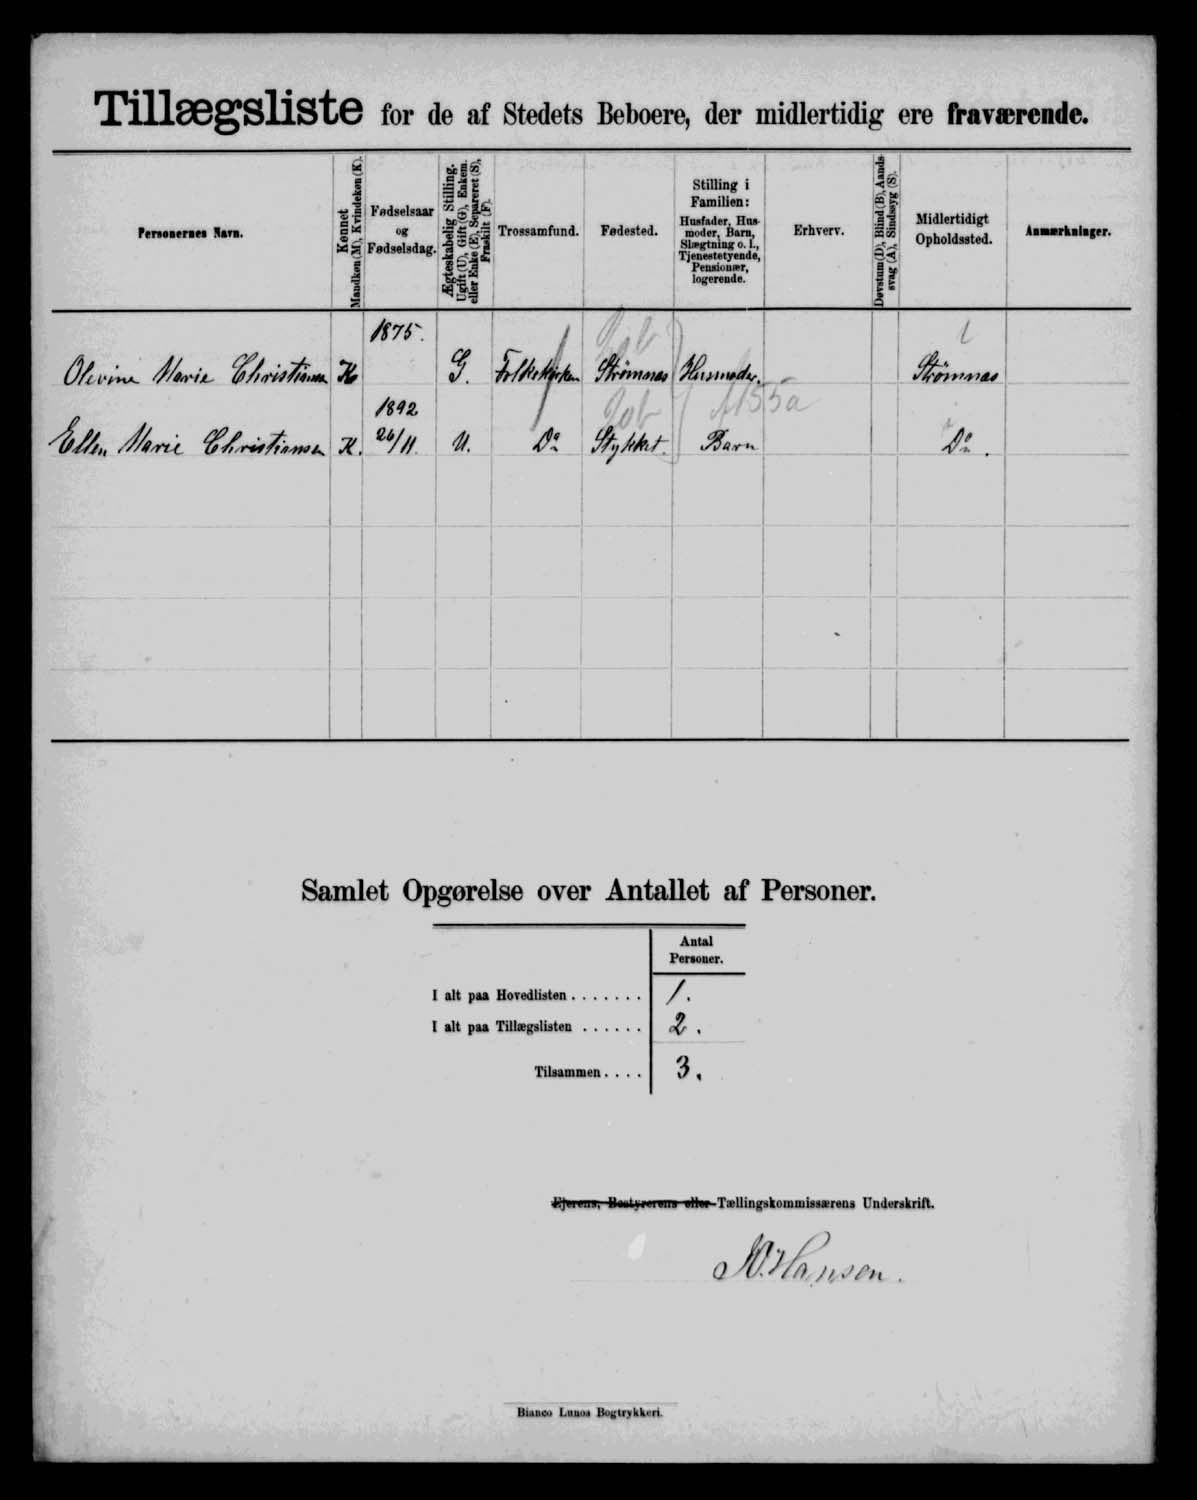 Tillægsliste for de af Stedets Beboere, der midlertidig ere fraværende.
Personernes Navn.
Kønnet
Mandkøn (M), Kvindekøn (K).
Fødselsaar
og
Fødselsdag.
Ægteskabelig Stilling.
Ugift (U), Gift (G), Enkem.
eller Enke (E), Separeret (S),
Fraskilt (F).
Trossamfund.
Fødested.
Stilling i
Familien:
Husfader, Hus-
moder, Barn,
Slægtning o. l.,
Tjenestetyende,
Pensionær,
logerende.
Erhverv.
Døvstum (D), Blind (B), Aands-
svag (A), Sindssyg (S).
Midlertidigt
Opholdssted.
Anmærkninger.
1875.
Olevine Marie Christiansen K G. Folkekirken Strömnæs Husmoder. Strömnæs
1892
Ellen Marie Christiansen K. 26/11. U. Do Stykket. Barn Do.
Samlet Opgørelse over Antallet af Personer.
Antal
Personer.
I alt paa Hovedlisten . . . . . . . 1.
I alt paa Tillægslisten . . . . . . 2.
Tilsammen . . . . 3.
Ejerens, Bestyrerens eller Tællingskommissærens Underskrift.
Hansen.
Bianco Lunos Bogtrykkeri.